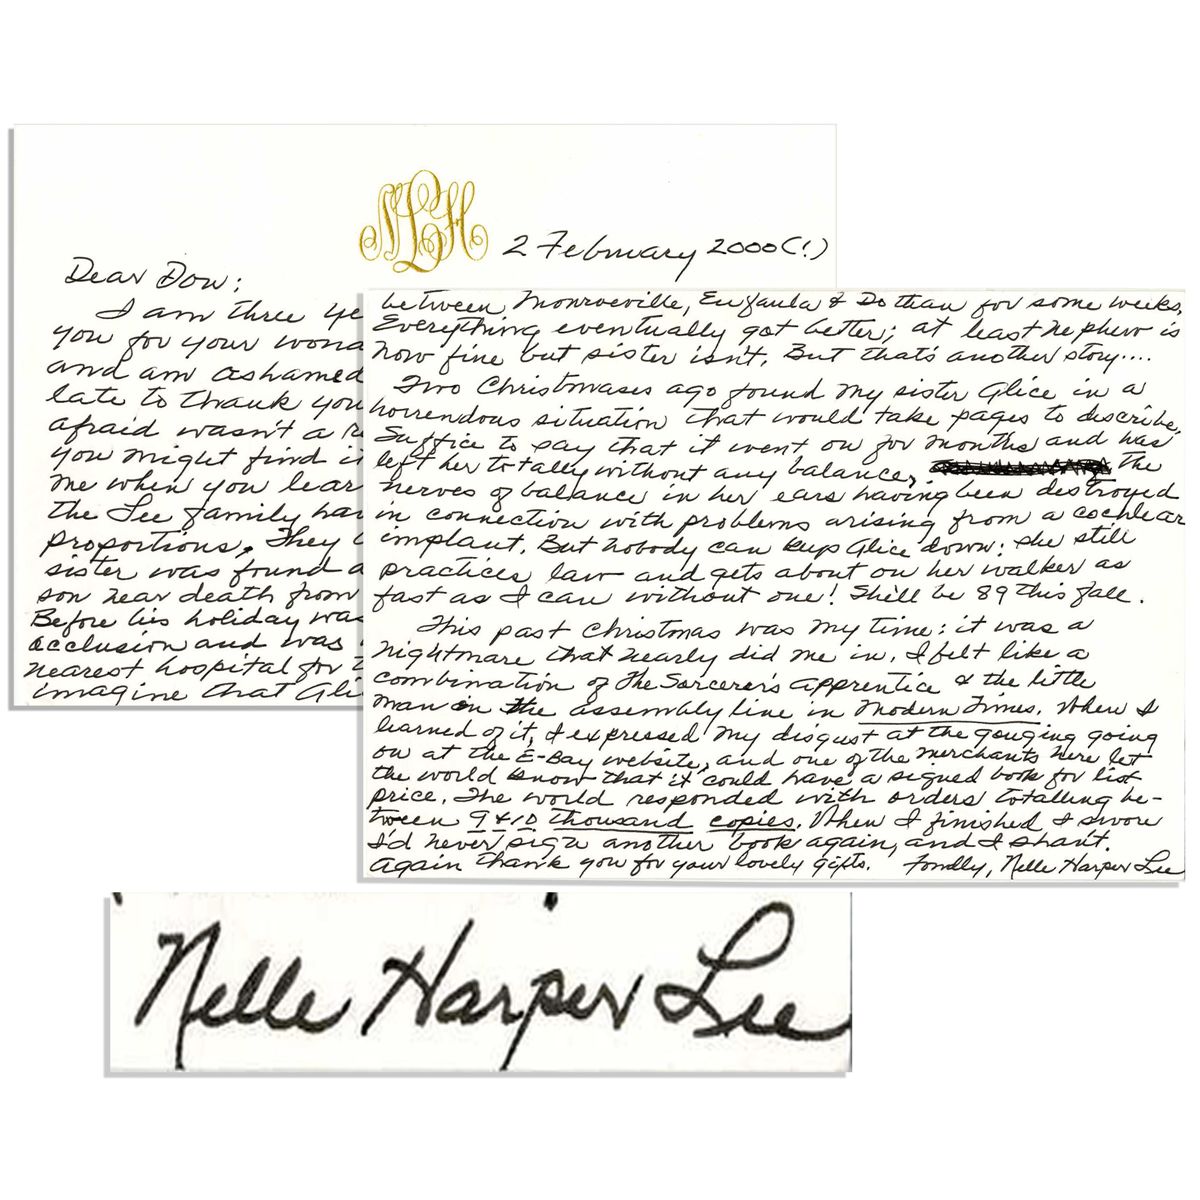 NLH
2 February 2000(!)
Dear Dow:
I am three ye
you for your wond
and am ashamed
late to thank you
afraid wasn't a re
you might find it
me when you lear
the Lee family hav
proportions. They
sister was found a
son near death from
Before his holiday was
occlusion and was
nearest hospital for t
imagine that Ali
between Monroeville, Eufaula & Dothan for some weeks.
Everything eventually got better; at least nephew is
now fine but sister isn't. But that's another story....
Two Christmases ago found my sister Alice in a
horrendous situation that would take pages to describe.
Suffice to say that it went on for months and has
left her totally without any balance, the
nerves of balance in her ears having been destroyed
in connection with problems arising from a cochlear
implant. But nobody can keep Alice down: she still
practices law and gets about on her walker as
fast as I can without one! She'll be 89 this fall.
This past Christmas was my time: it was a
nightmare that nearly did me in. I felt like a
combination of The Sorcerer's Apprentice & the little
man on the assembly line in Modern Times. When I
learned of it, I expressed my disgust at the gouging going
on at the E-Bay website, and one of the merchants here let
the world know that it could have a signed book for list
price. The world responded with orders totalling be-
tween 9 & 10 thousand copies. When I finished I swore
I'd never sign another book again, and I shan't.
Again thank you for your lovely gifts. Fondly, Nelle Harper Lee
Nelle Harper Lee